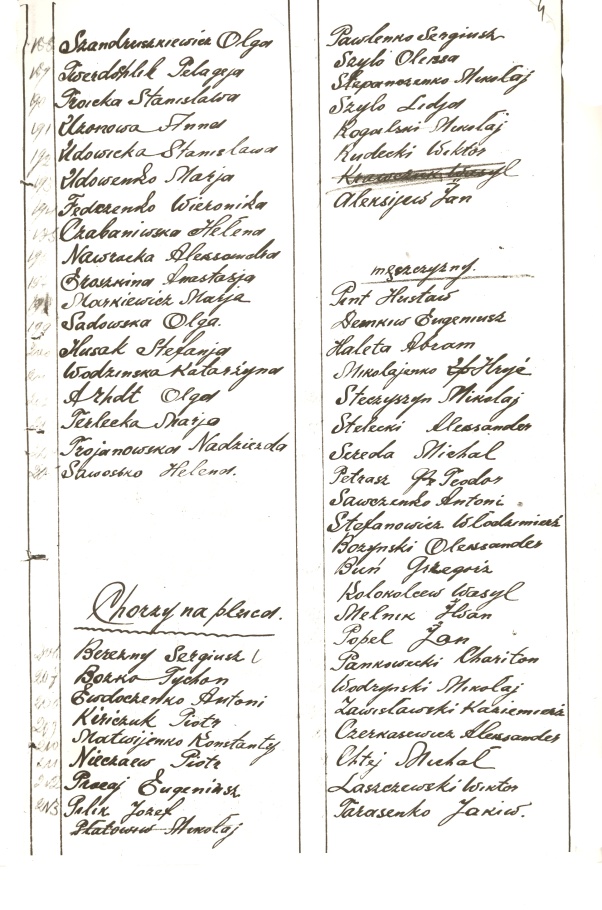 188 Szandruszkiewicz Olga
189 Twerdohlib Pelageja
190 Troicka Stanisława
191 Uzonowa Anna
192 Udowicka Stanisława
193 Udowenko Marja
Fedczenko Wieronika
Czabaniwska Helena
Nawrocka Aleksandra
Eroszkina Anastazja
Markiewicz Marja
199 Sadowska Olga.
Husak Stefanja
Wodzinska Katarzyna
Arhdt Olga
Terlecka Marja
Trojanowska Nadzieżda
Sawosko Helena.
Chorzy na płuca.
Berezny Sergiusz
Bozko Tychon
Ewdoczenko Antoni
Kiriczuk Piotr
Matwijenko Konstanty
Nieczaew Piotr
Pracaj Eugeniusz
Pelix Józef
Płatowiw Mikołaj
4
Pawlenko Sergiusz
Szylo Olessa
Stepanczenko Mikołaj
Szylo Lidja
Rogalski Mikołaj
Rudecki Wiktor
Krawczuk Wasyl
Aleksijew Jan
mężczyzny.
Pint Hustaw
Demkiw Eugeniusz
Haleta Abram
Mikolajenko Hryć
Steczyszyn Mikołaj
Stelecki Alessander
Sereda Michał
Petrasz Teodor
Sawczenko Antoni
Stefanowicz Włodzimierz
Bozynski Olessander
Buń Grzegorz
Kolokolcew Wasyl
Melnik Iwan
Popel Jan
Pankowecki Chariton
Wodzynski Mikołaj
Zawisławski Kaziemierz
Czerkasewicz Alessander
Michał
Laszczewski Wiktor
Tarasenko Jakiw.